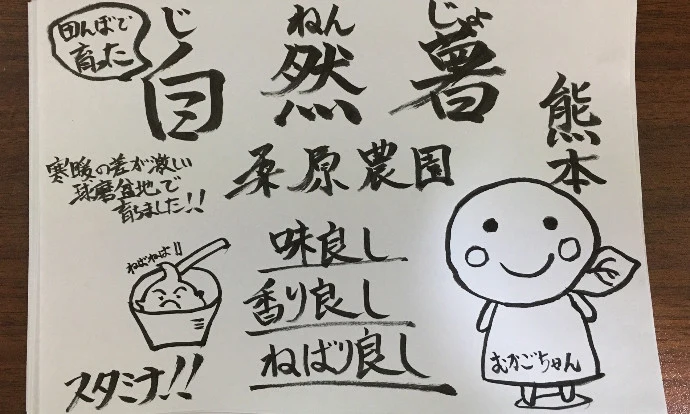 田んぼで
育った
じねんじょ
自然薯
熊本
桑原農園
寒暖の差が激しい
球磨盆地で
育ちました!!
味良し
香り良し
ねばり良し
ねばねばよ!!
スタミナ!!
むかごちゃん